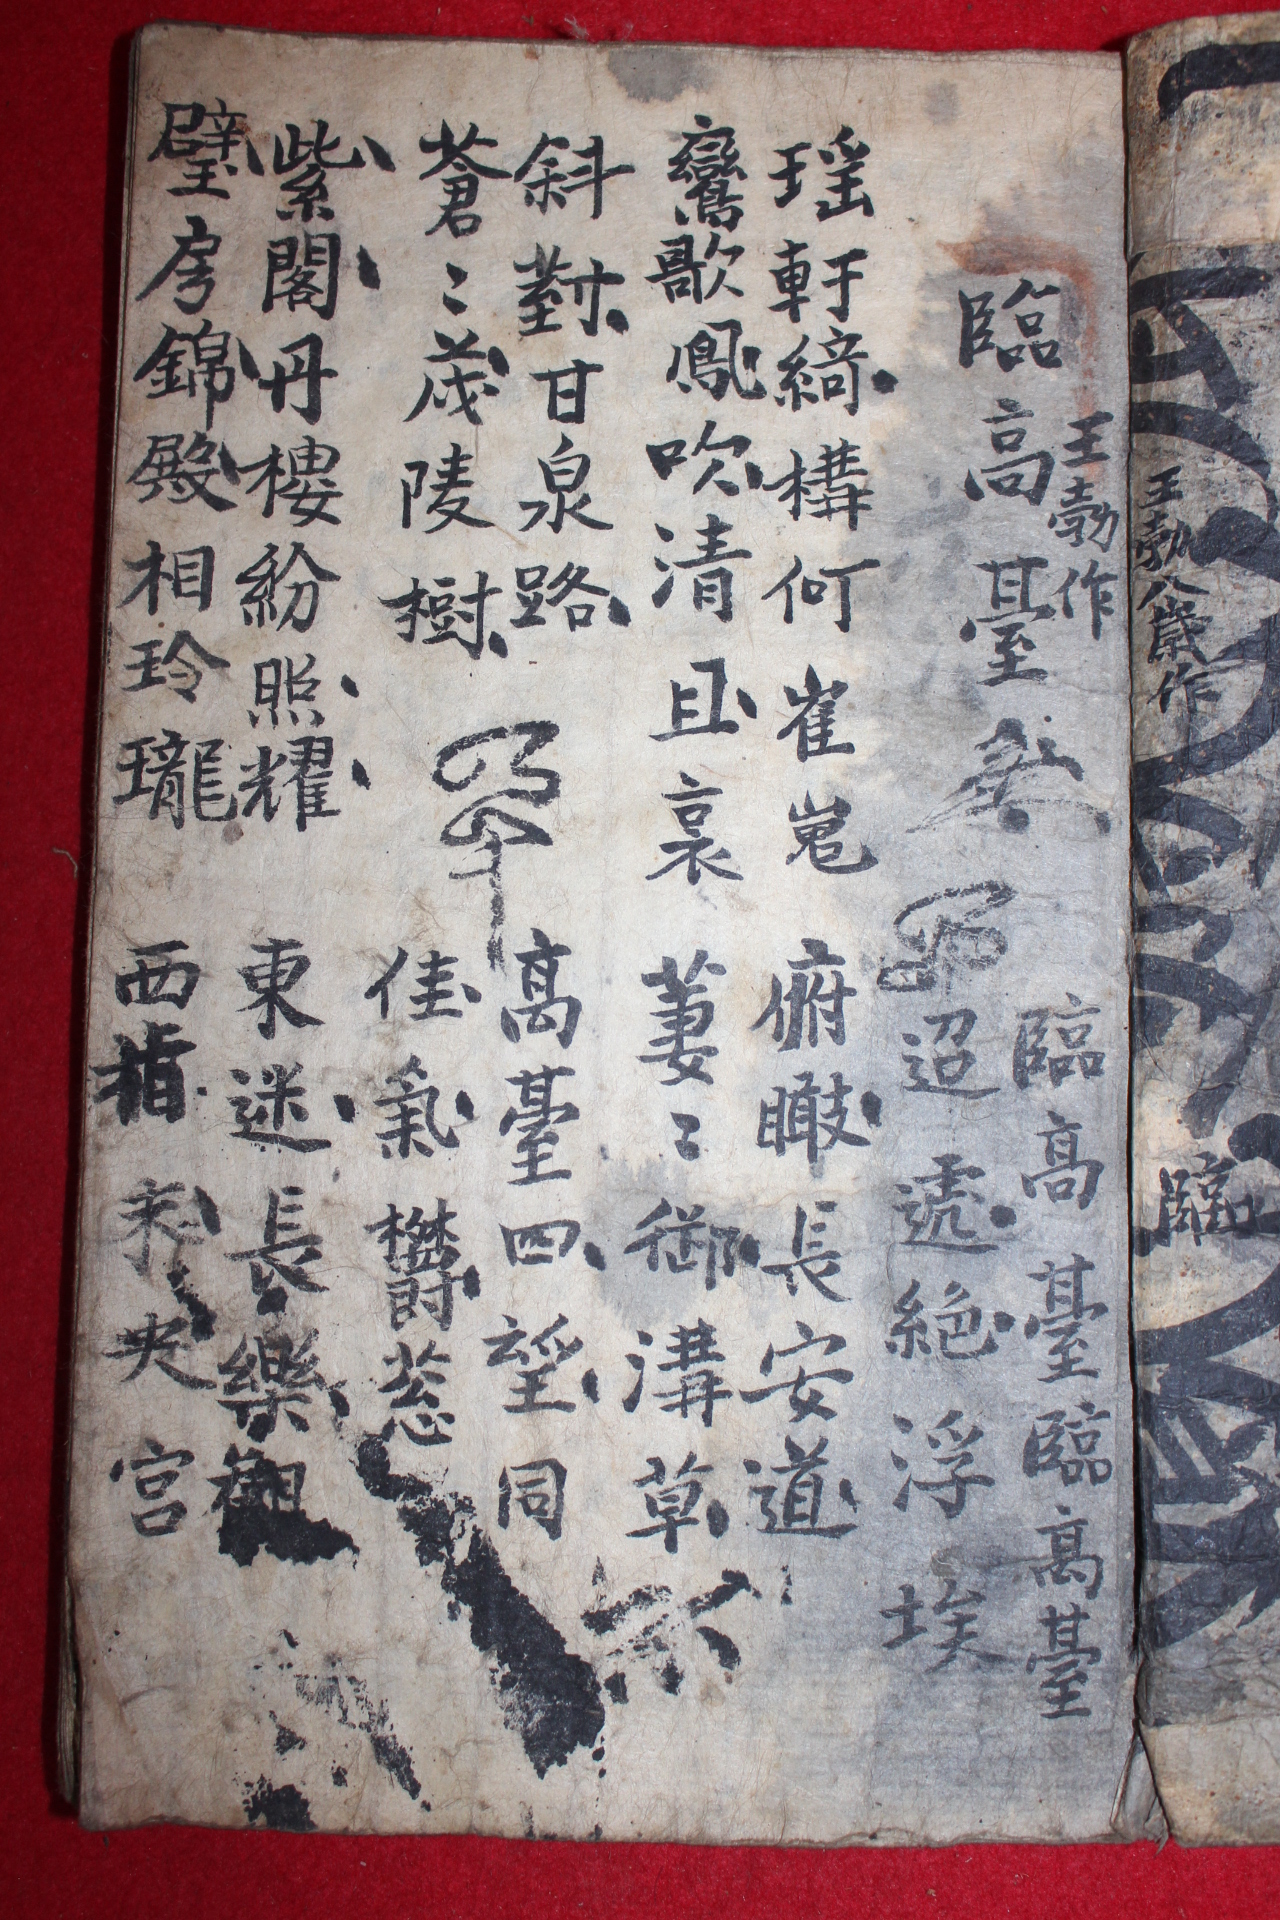 王勃八歲作
臨
臨高臺
王勃作
臨高臺臨高臺
迢遞絶浮埃
瑶軒綺構何崔嵬
鸞歌鳳吹清且哀
俯瞰長安道
萋〻御溝草
斜對甘泉路
蒼〻茂陵樹
高臺四望同
佳氣欝葱
紫閣丹樓紛照耀
璧房錦殿相玲瓏
東迷長樂觀
西指未央宮